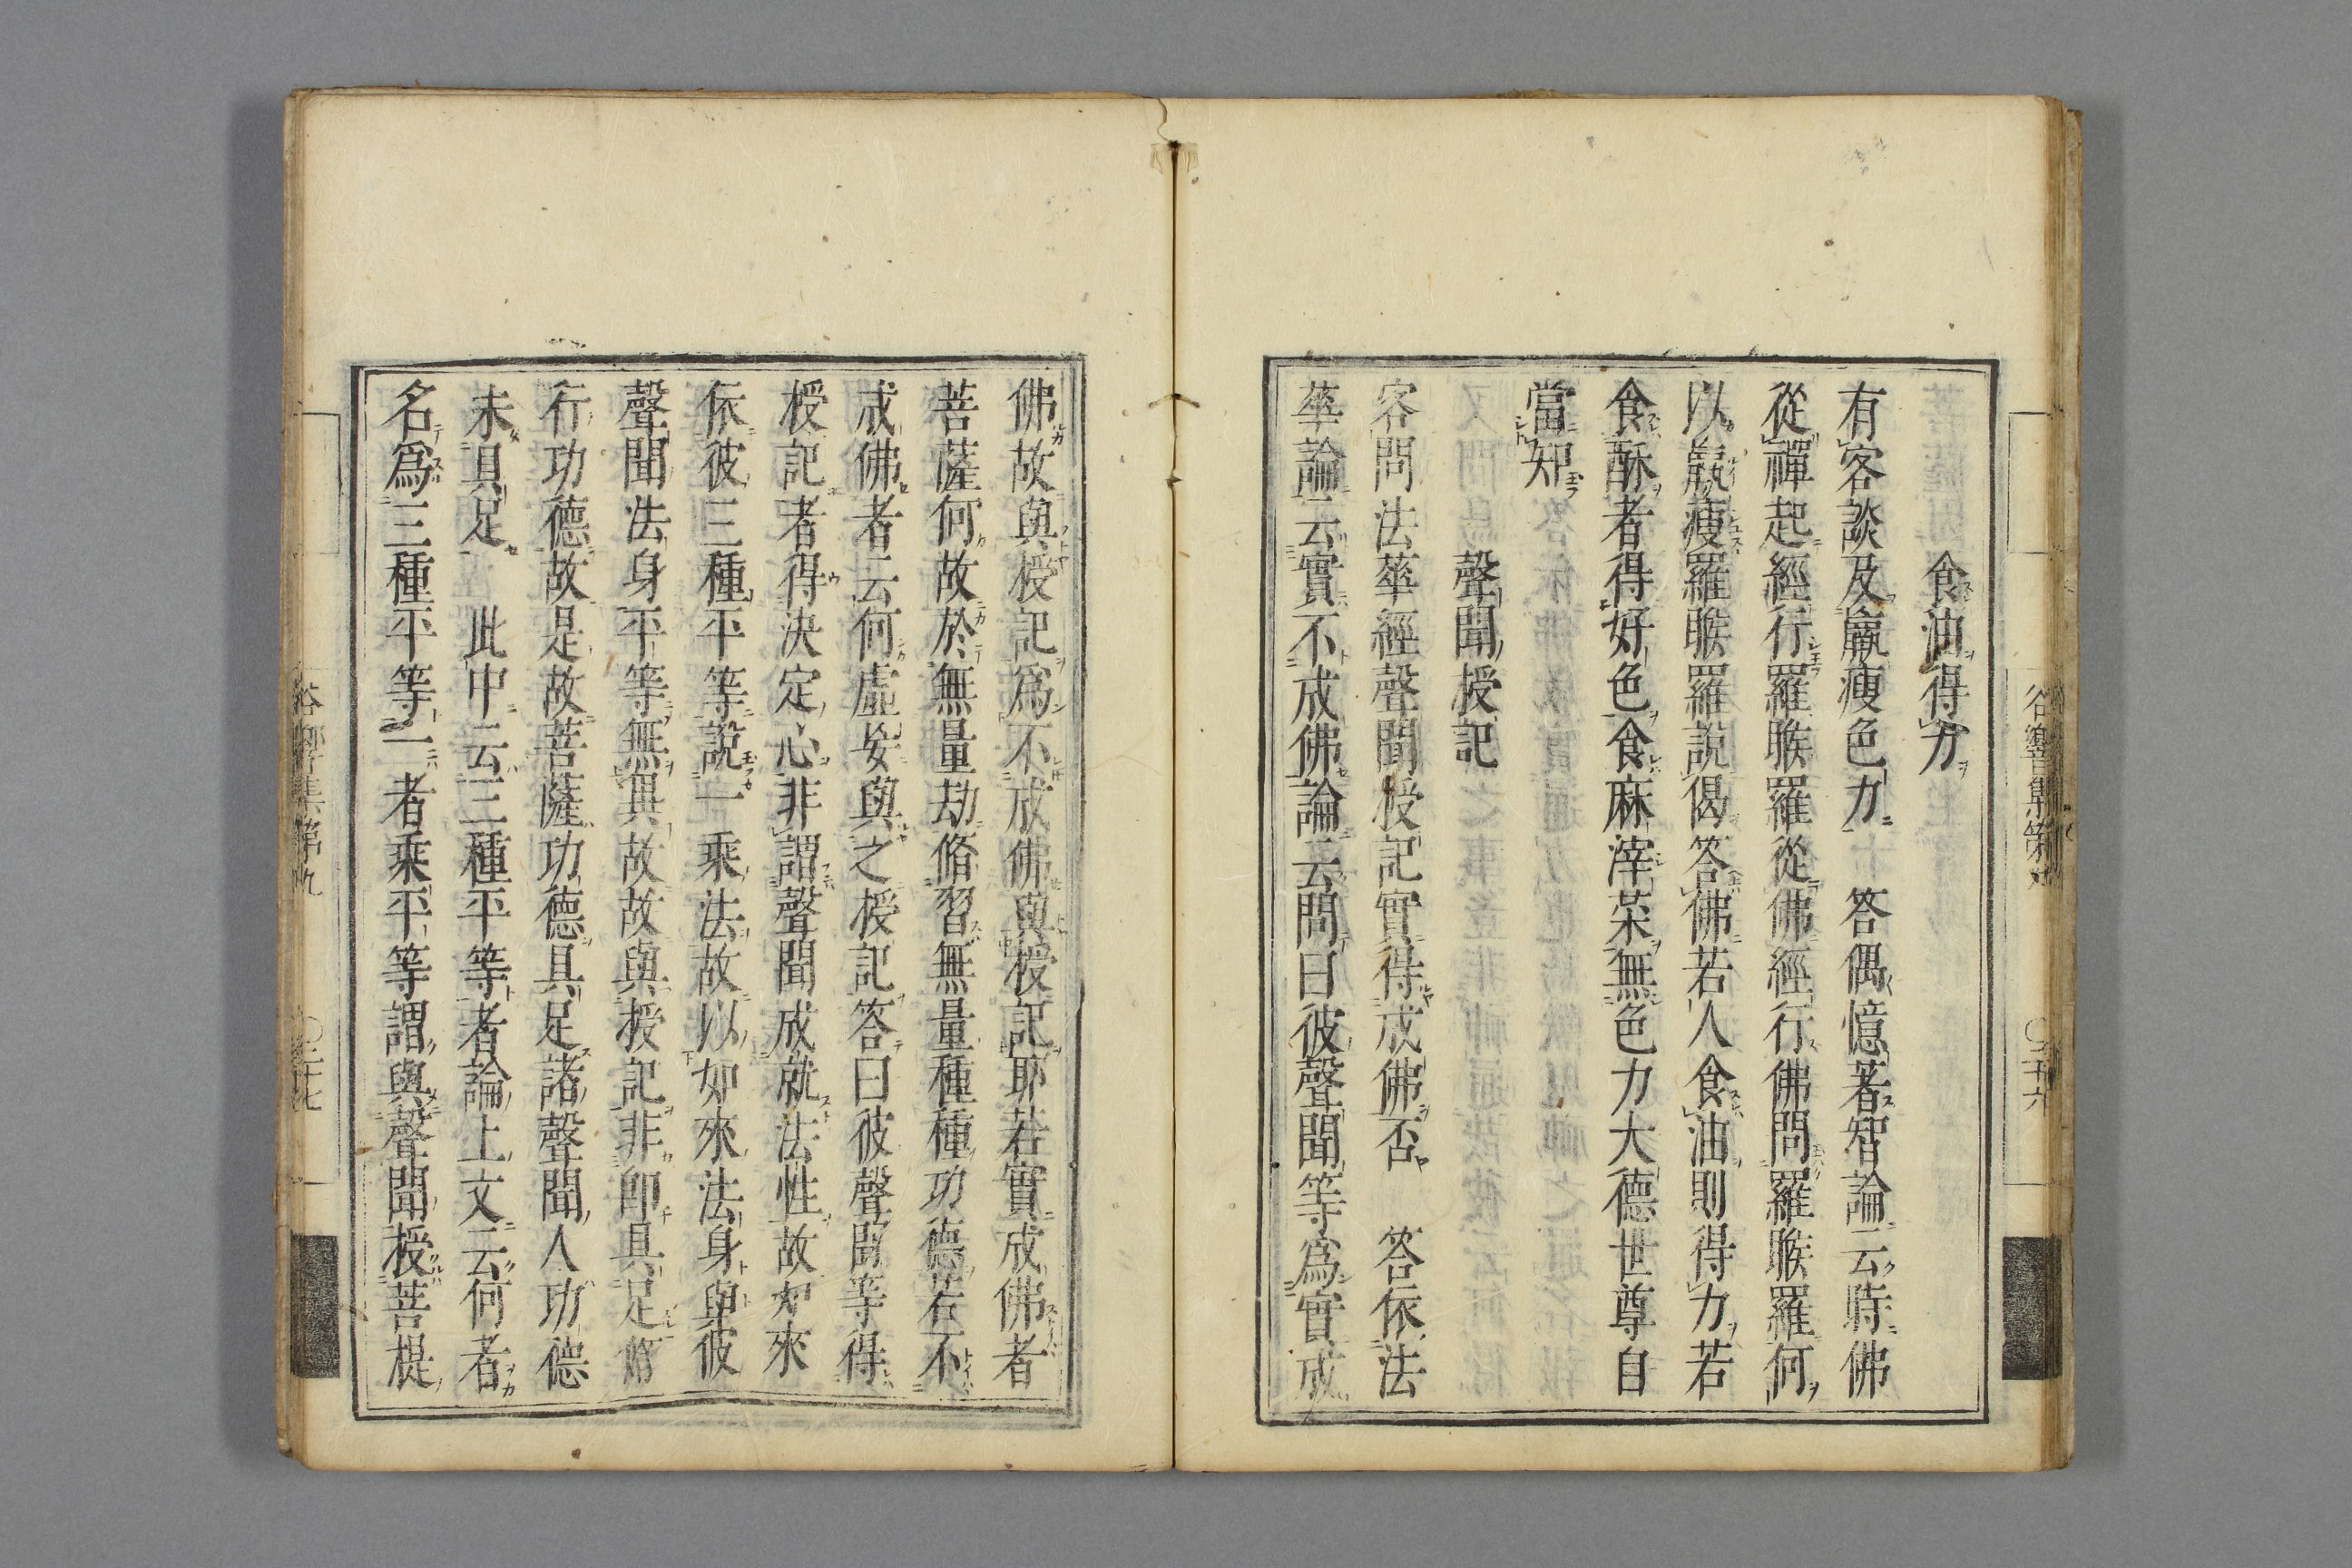 食油得力
有客談及羸瘦色力　答偶憶著智論云時佛
從禪起經行羅睺羅從佛經行佛問羅睺羅何
以羸瘦羅睺羅說偈答佛若人食油則得力若
食酥者得好色食麻滓菜無色力大德世尊自
當知
聲聞授記
客問法華經聲聞授記實得成佛否　答依法
華論云實不成佛論云問曰彼聲聞等爲實成
佛故與授記爲不成佛與授記耶若實成佛者
菩薩何故於無量劫脩習無量種種功德若不
成佛者云何虛妄與之授記答曰彼聲聞等得
授記者得決定心非謂聲聞成就法性故如來
依彼三種平等說一乘法故以如來法身與彼
聲聞法身平等無異故故與授記非卽具足脩
行功德故是故菩薩功德具足諸聲聞人功德
未具足　此中云三種平等者論上文云何者
名爲三種平等一者乘平等謂與聲聞授菩提
谷響集第九　〇二十六
谷響集第九　〇二十七